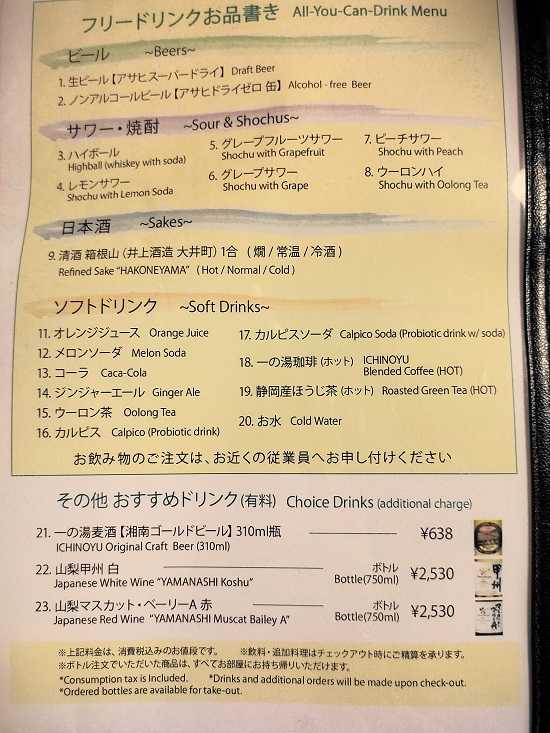 フリードリンクお品書き All-You-Can-Drink Menu
ビール ~Beers~
1. 生ビール【アサヒスーパードライ】 Draft Beer
2. ノンアルコールビール【アサヒドライゼロ 缶】 Alcohol - free Beer
サワー・焼酎 ~Sour & Shochus~
3. ハイボール
Highball (whiskey with soda)
4. レモンサワー
Shochu with Lemon Soda
5. グレープフルーツサワー
Shochu with Grapefruit
6. グレープサワー
Shochu with Grape
7. ピーチサワー
Shochu with Peach
8. ウーロンハイ
Shochu with Oolong Tea
日本酒 ~Sakes~
9. 清酒 箱根山（井上酒造 大井町）1合 （燗 / 常温 / 冷酒）
Refined Sake “HAKONEYAMA” ( Hot / Normal / Cold )
ソフトドリンク ~Soft Drinks~
11. オレンジジュース Orange Juice
12. メロンソーダ Melon Soda
13. コーラ Caca-Cola
14. ジンジャーエール Ginger Ale
15. ウーロン茶 Oolong Tea
16. カルピス Calpico (Probiotic drink)
17. カルピスソーダ Calpico Soda (Probiotic drink w/ soda)
18. 一の湯珈琲（ホット） ICHINOYU
Blended Coffee (HOT)
19. 静岡産ほうじ茶（ホット） Roasted Green Tea (HOT)
20. お水 Cold Water
お飲み物のご注文は、お近くの従業員へお申し付けください
その他 おすすめドリンク(有料) Choice Drinks (additional charge)
21. 一の湯麦酒【湘南ゴールドビール】310ml瓶 ¥638
ICHINOYU Original Craft Beer (310ml)
22. 山梨甲州 白 ボトル ¥2,530
Japanese White Wine “YAMANASHI Koshu” Bottle(750ml)
23. 山梨マスカット・ベーリーA 赤 ボトル ¥2,530
Japanese Red Wine “YAMANASHI Muscat Bailey A” Bottle(750ml)
甲州
※上記料金は、消費税込みのお値段です。 ※飲料・追加料理はチェックアウト時にご精算を承ります。
※ボトル注文でいただいた商品は、すべてお部屋にお持ち帰りいただけます。
*Consumption tax is Included. *Drinks and additional orders will be made upon check-out.
*Ordered bottles are available for take-out.